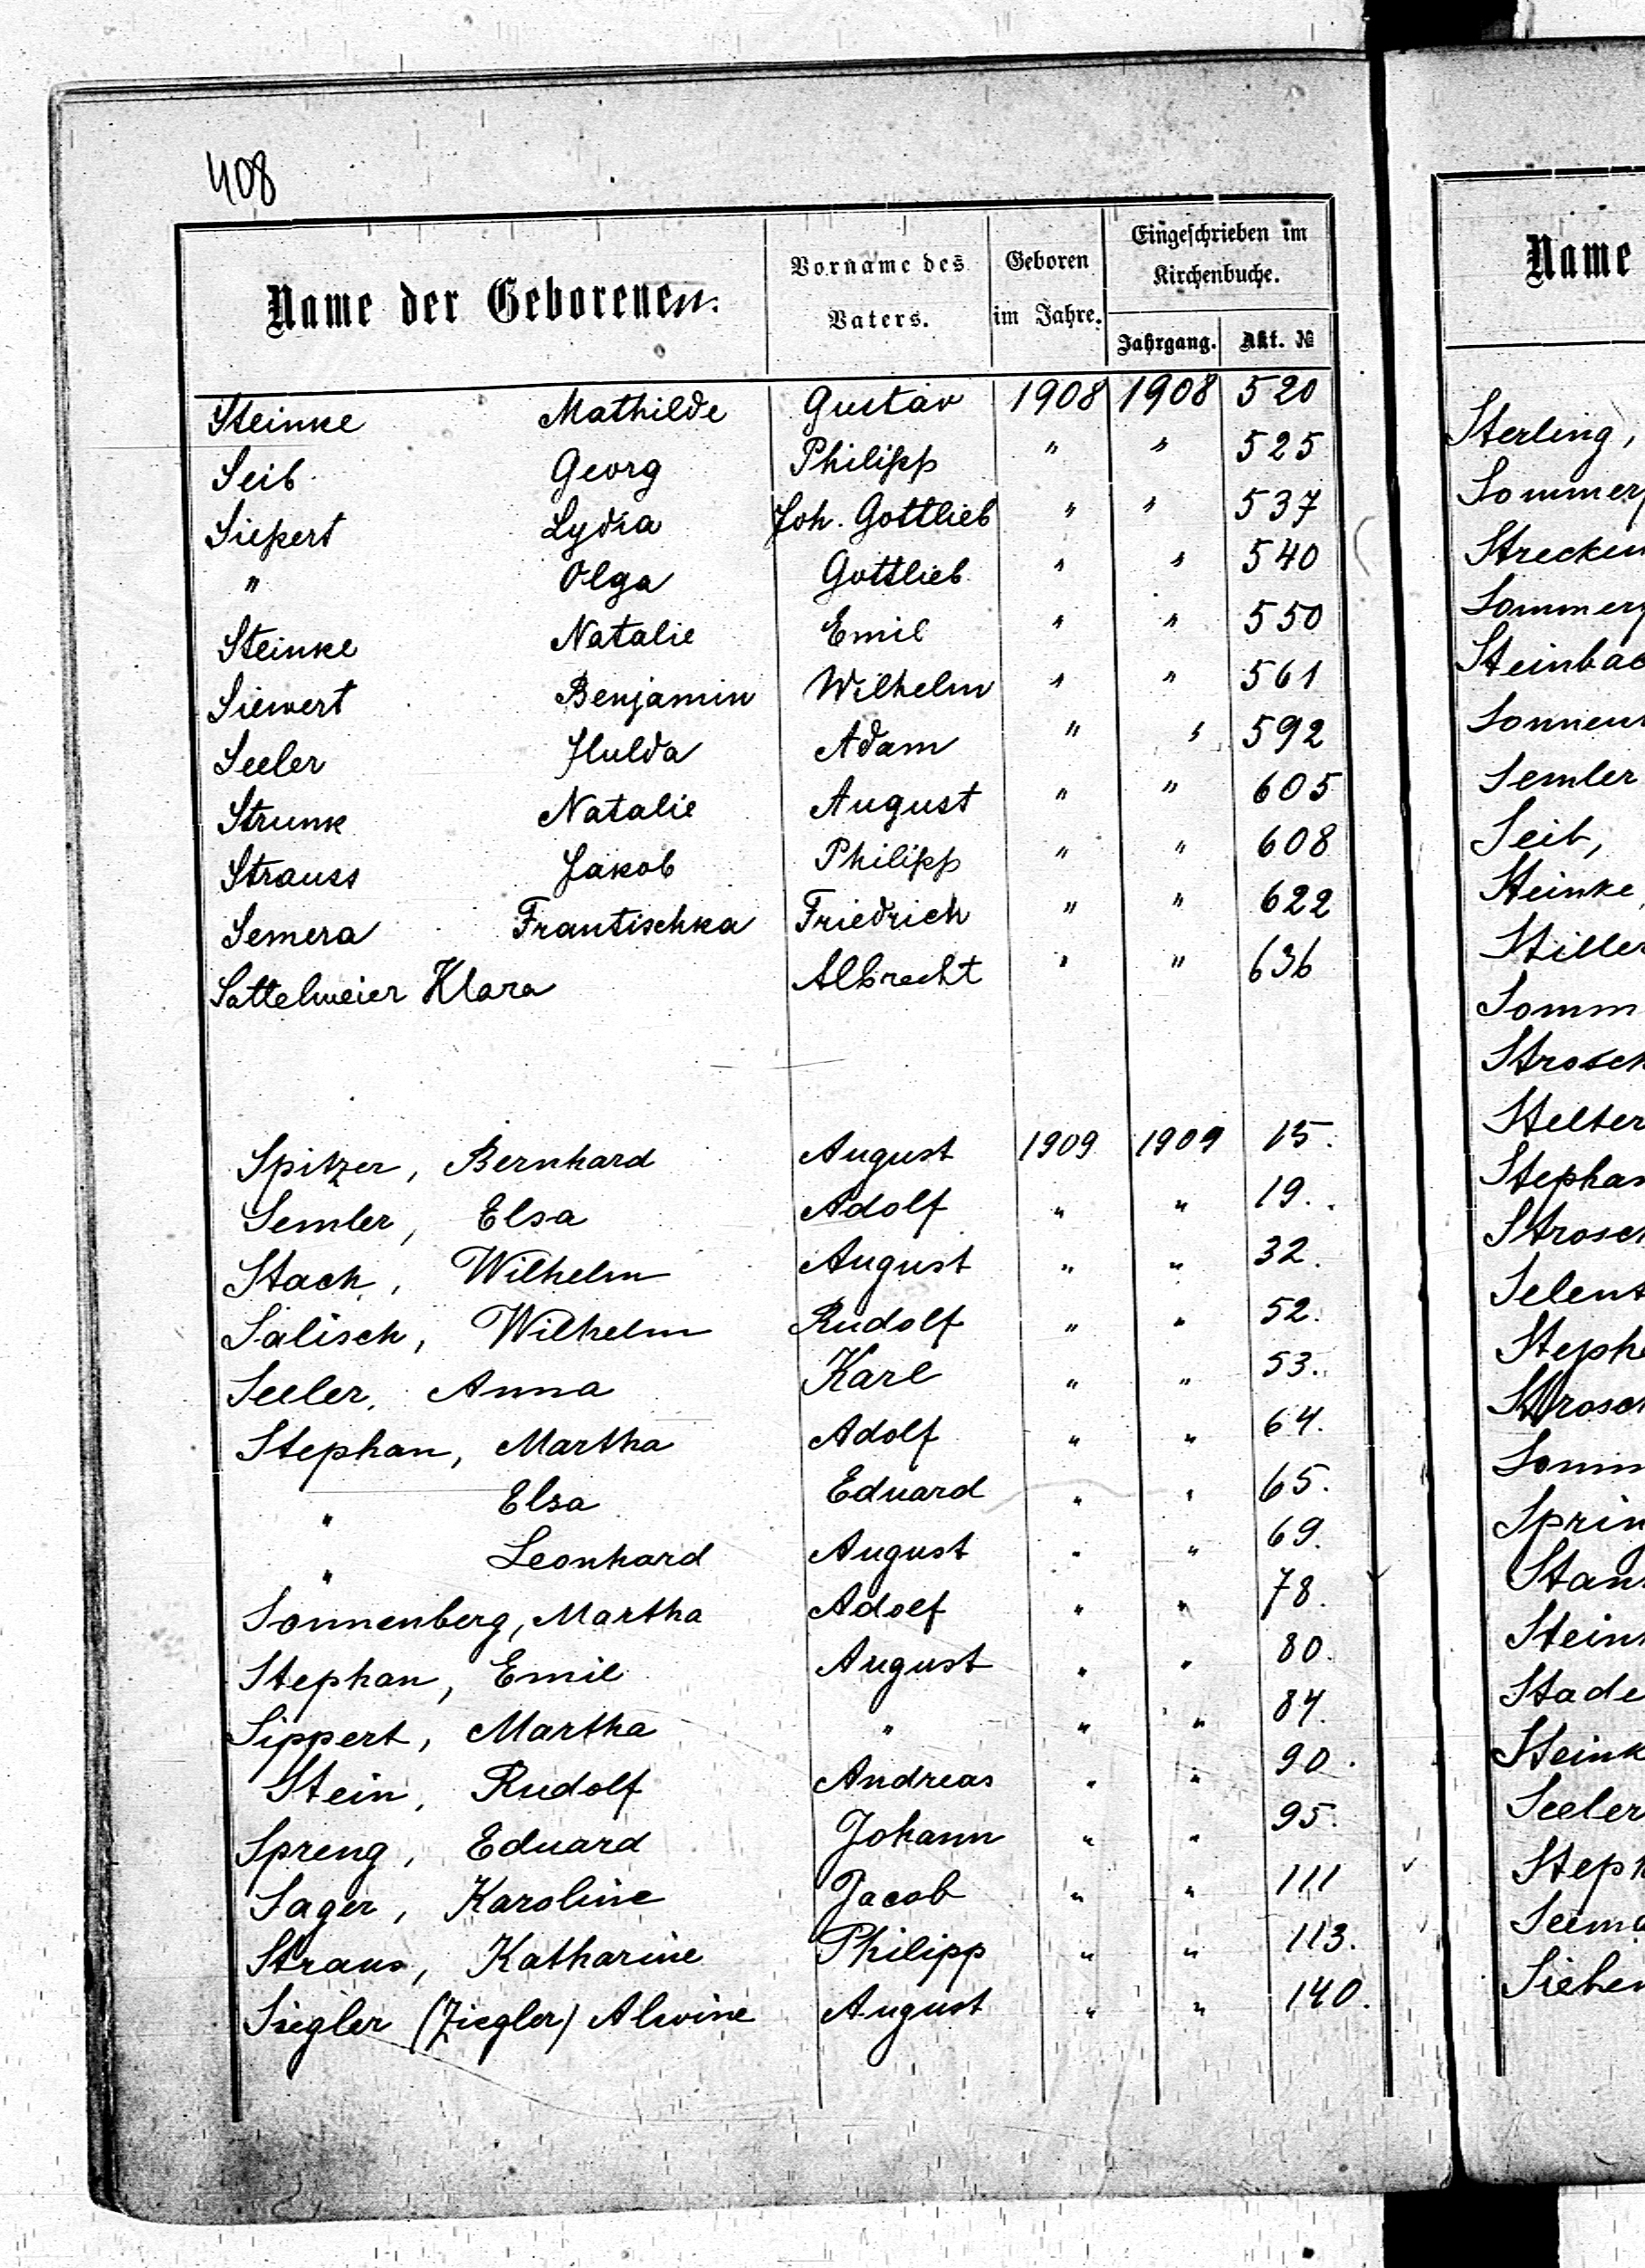 408
Name der Geborenen. Vorname des Vaters. Geboren im Jahre. Eingeschrieben im Kirchenbuche. Jahrgang. Akt. №
Steinke Mathilde Gustav 1908 1908 520
Seib Georg Philipp " " 525
Siepert Lydia Joh. Gottlieb " " 537
" Olga Gottlieb " " 540
Steinke Natalie Emil " " 550
Siewert Benjamin Wilhelm " " 561
Seeler Hulda Adam " " 592
Strunk Natalie August " " 605
Strauss Jakob Philipp " " 608
Semera Frantischka Friedrich " " 622
Sattelmeier Klara Albrecht " " 636
Spitzer, Bernhard August 1909 1909 15.
Semler, Elsa Adolf " " 19.
Stach, Wilhelm August " " 32.
Salisch, Wilhelm Rudolf " " 52.
Seeler, Anna Karl " " 53.
Stephan, Martha Adolf " " 64.
" Elsa Eduard " " 65.
" Leonhard August " " 69.
Sonnenberg, Martha Adolf " " 78.
Stephan, Emil August " " 80.
Sippert, Martha " " " 84.
Stein, Rudolf Andreas " " 90.
Spreng, Eduard Johann " " 95.
Sager, Karoline Jacob " " 111
Straus, Katharine Philipp " " 113.
Siegler (Ziegler) Alwine August " " 140.
Name
Sterling,
Seib,
Steinke,
Semler
Seeler